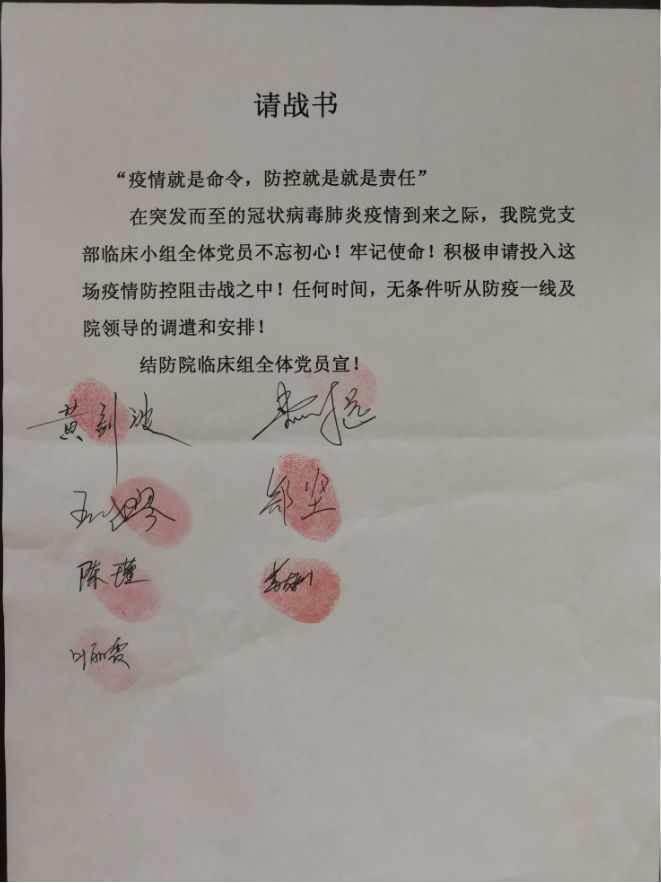 请战书
“疫情就是命令，防控就是就是责任”
在突发而至的冠状病毒肺炎疫情到来之际，我院党支
部临床小组全体党员不忘初心！牢记使命！积极申请投入这
场疫情防控阻击战之中！任何时间，无条件听从防疫一线及
院领导的调遣和安排！
结防院临床组全体党员宣！
黄剑波
邹坚
陈瑾
叶丽霞